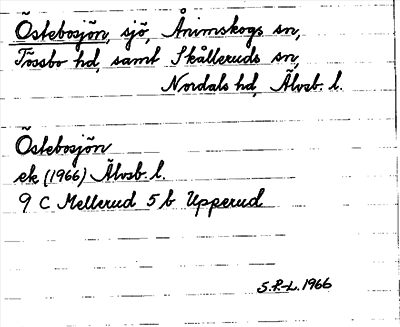 Östebosjön, sjö, Ånimskogs sn,
Tössbo hd, samt Skålleruds sn,
Nordals hd, Älvsb. l.
Östebosjön
ek (1966) Älvsb. l.
9 C Mellerud 5 b Upperud
S.F-L. 1966